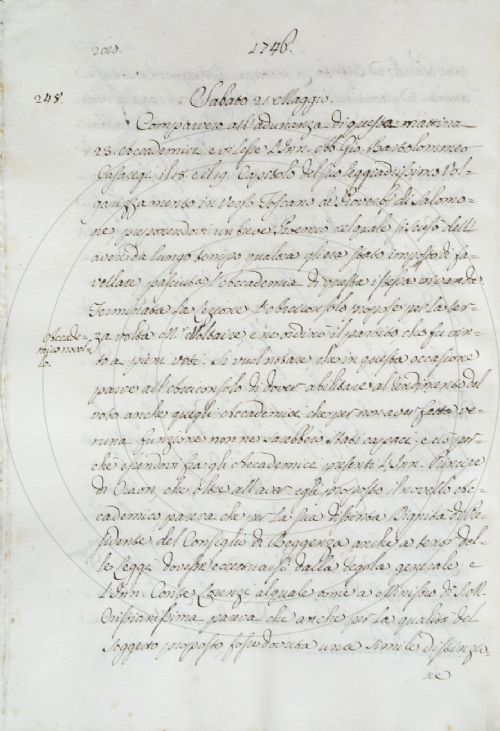 200. 1746.
248. Sabato 21 Maggio.
Comparvero all'adunanza di questa mattina
23. Accademici e vi lesse l'Inn. Ab. Gio. Bartolommeo
Casaregi il 18. e il 19. Capitolo del suo leggiadrissimo Vol-
garizzamento in verso Toscano de' Proverbj di Salomo-
ne premettendovi un breve Proemio nel quale si scusò dell'
avere da lungo tempo qualora gli era stato imposto di fa-
vellare pasciuta l'Accademia di questa istessa vivanda.
Terminata la lezione l'Arciconsolo propose per la ter-
Accade-
mico novel-
lo.
za volta M. Voltaire e ne ordinò il partito che fu vin-
to a pieni voti. Si vuol notare che in questa occasione
parve all'Arciconsolo di dover abilitare al rendimento del
voto anche quegli Accademici che per non aver fatta ve-
runa funzione non ne sarebbero stati capaci; e ciò per-
chè essendovi fra gli Accademici presenti l'Inn. Principe
di Craon, che oltre all'aver egli proposto il novello Ac-
cademico pareva che per la sua distinta Dignità di Pre-
sidente del Consiglio di Reggenza anche a tenor del-
le leggi dovesse eccettuarsi dalla regola generale, e
l'Inn. Conte Lorenzi al quale come a Ministro di S. M.
Cristianissima pareva che anche per la qualità del
soggetto proposto fosse dovuta una simile distinzio-
ne